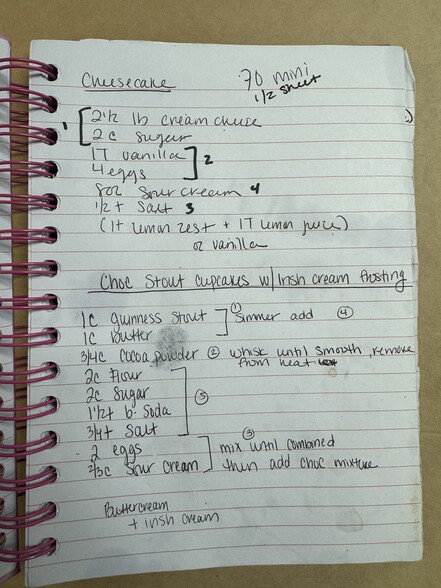 Cheesecake
70 mini
1/2 sheet
1 [ 2 1/2 lb cream cheese
2c sugar
1T vanilla ] 2
4 eggs
8oz sour cream 4
1/2 t salt 3
(1t lemon zest + 1T lemon juice)
or vanilla
:)
Choc Stout Cupcakes w/ Irish cream frosting
1c guinness stout ] ① simmer add ④
1c butter
3/4c cocoa powder ② whisk until smooth, remove
from heat
2c flour
2c sugar ] ⑤
1 1/2t b. soda
3/4t salt
2 eggs ] ③ mix until combined
2/3c sour cream then add choc mixture
Buttercream
+ irish cream